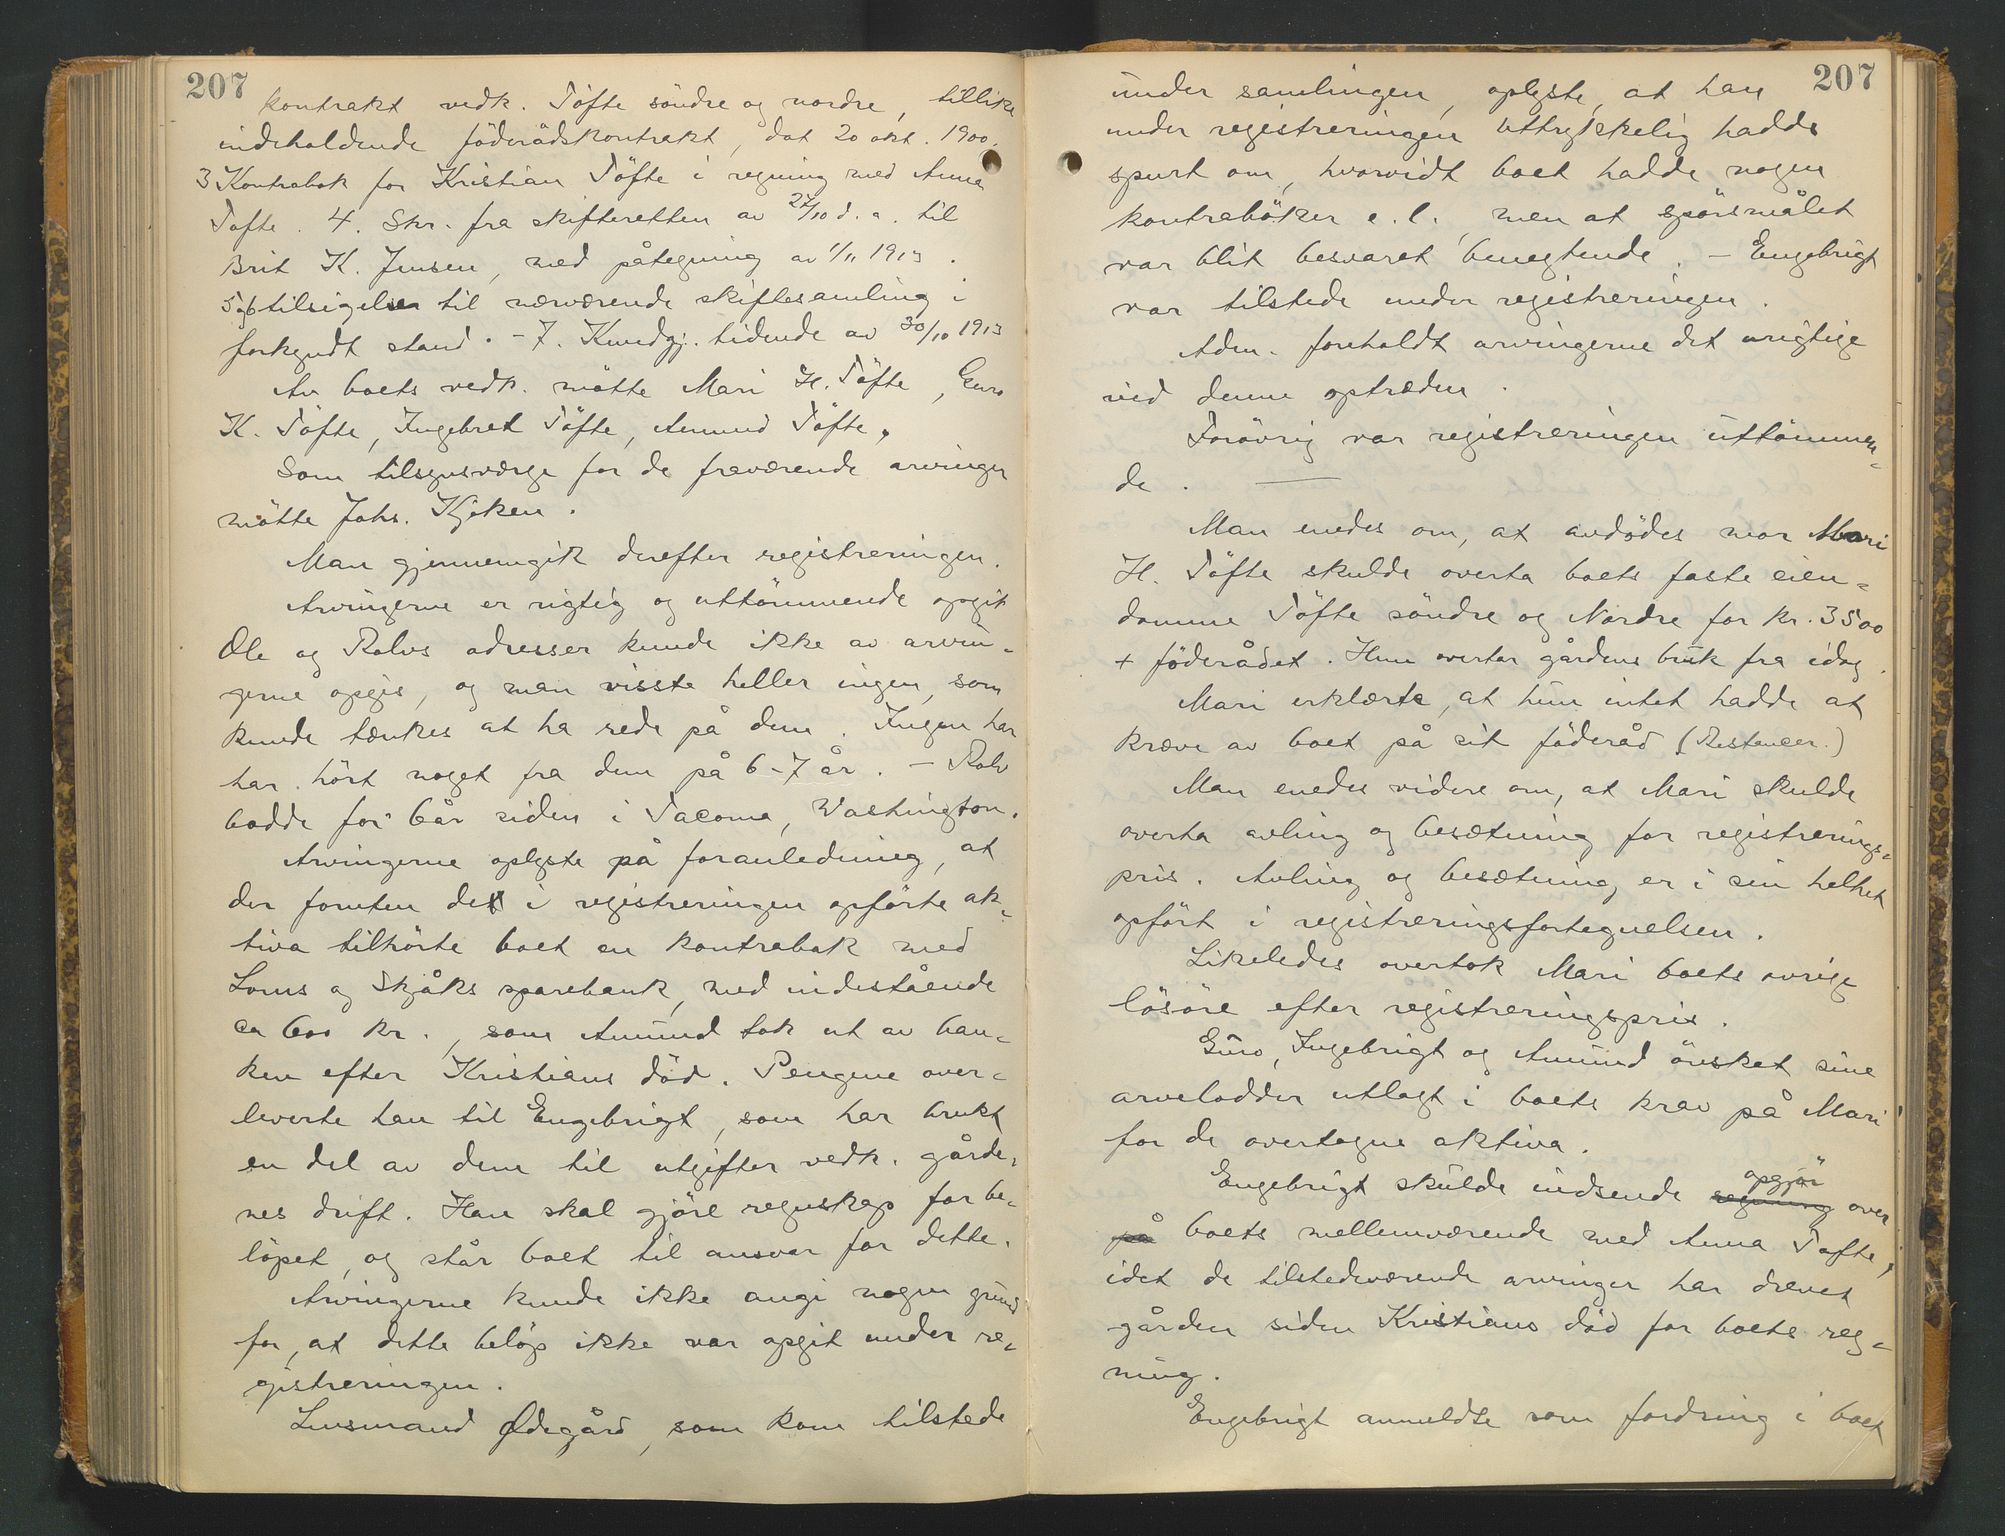 207
kontrakt vedk. Töfte söndre og nordre, tillike
indeholdende föderådskontrakt, dat 20 okt. 1900.
3 Kontrabok for Kristian Töfte i regning med Anna
Tofte. 4. Skr. fra skifteretten av 27/10 d. a. til
Brit K. Jensen, med påtegning av 1/11 1913.
5 og 6 tilsigelser til nærværende skiftesamling i
forkyndt stand. - 7. Kundgj. tidende av 30/10 1913
Av boets vedk. mötte Mari H. Töfte, Guro
K. Töfte, Ingebret Töfte, Amund Töfte.
Som tilsynsværge for de fraværende arvinger
mötte Johs. Kjöken.
Man gjennemgik derefter registreringen.
Arvingerne er rigtig og uttömmende opgit
Ole og Rolvs adresser kunde ikke av arvin-
gerne opgis, og man visste heller ingen, som
kunde tænkes at ha rede på dem. Ingen har
har hört noget fra dem på 6-7 år. - Rolv
bodde for 6 år siden i Tacoma, Washington.
Arvingerne oplyste på foranledning, at
der foruten det i registreringen opförte ak-
tiva tilhörte boet en kontrabok med
Loms og Skjåks sparebank, med indestående
ca 600 kr., som Amund tok ut av ban-
ken efter Kristians död. Pengene over-
leverte han til Engebrigt, som har brukt
en del av dem til utgifter vedk. gårde-
nes drift. Han skal gjöre regnskap for be-
löpet, og står boet til ansvar for dette.
Arvingerne kunde ikke angi nogen grund
for, at dette belöp ikke var opgit under re-
gistreringen.
Lensmand Ødegård, som kom tilstede
207
under samlingen, oplyste, at han
under registreringen uttrykkelig hadde
spurt om, hvorvidt boet hadde nogen
kontraböker e. l., men at spörsmålet
var blit besvaret benegtende. - Engebrigt
var tilstede under registreringen.
Adm. foreholdt arvingerne det urigtige
ved denne optræden.
Forövrig var registreringen uttömmen-
de.
Man enedes om, at avdödes mor Mari
H. Töfte skulde overta boets faste eien-
domme Töfte söndre og Nordre for kr. 3500
+ föderådet. Hun overtar gårdens bruk fra idag.
Mari erklærte, at hun intet hadde at
kræve av boet på sit föderåd (Restancer.)
Man enedes videre om, at Mari skulde
overta avling og besætning for registrerings-
pris. Avling og besætning er i sin helhet
opfört i registreringsfortegnelsen.
Likeledes overtok Mari boets övrige
lösöre efter registreringspris.
Guro, Ingebrigt og Amund önsket sine
arvelodder utlagt i boets krav på Mari
for de overtagne aktiva.
Engebrigt skulde indsende regning opgjör over
på boets mellemværende med Anna Tofte,
idet de tilstedeværende arvinger har drevet
gården siden Kristians död for boets reg-
ning.
Engebrigt anmeldte som fordring i boet